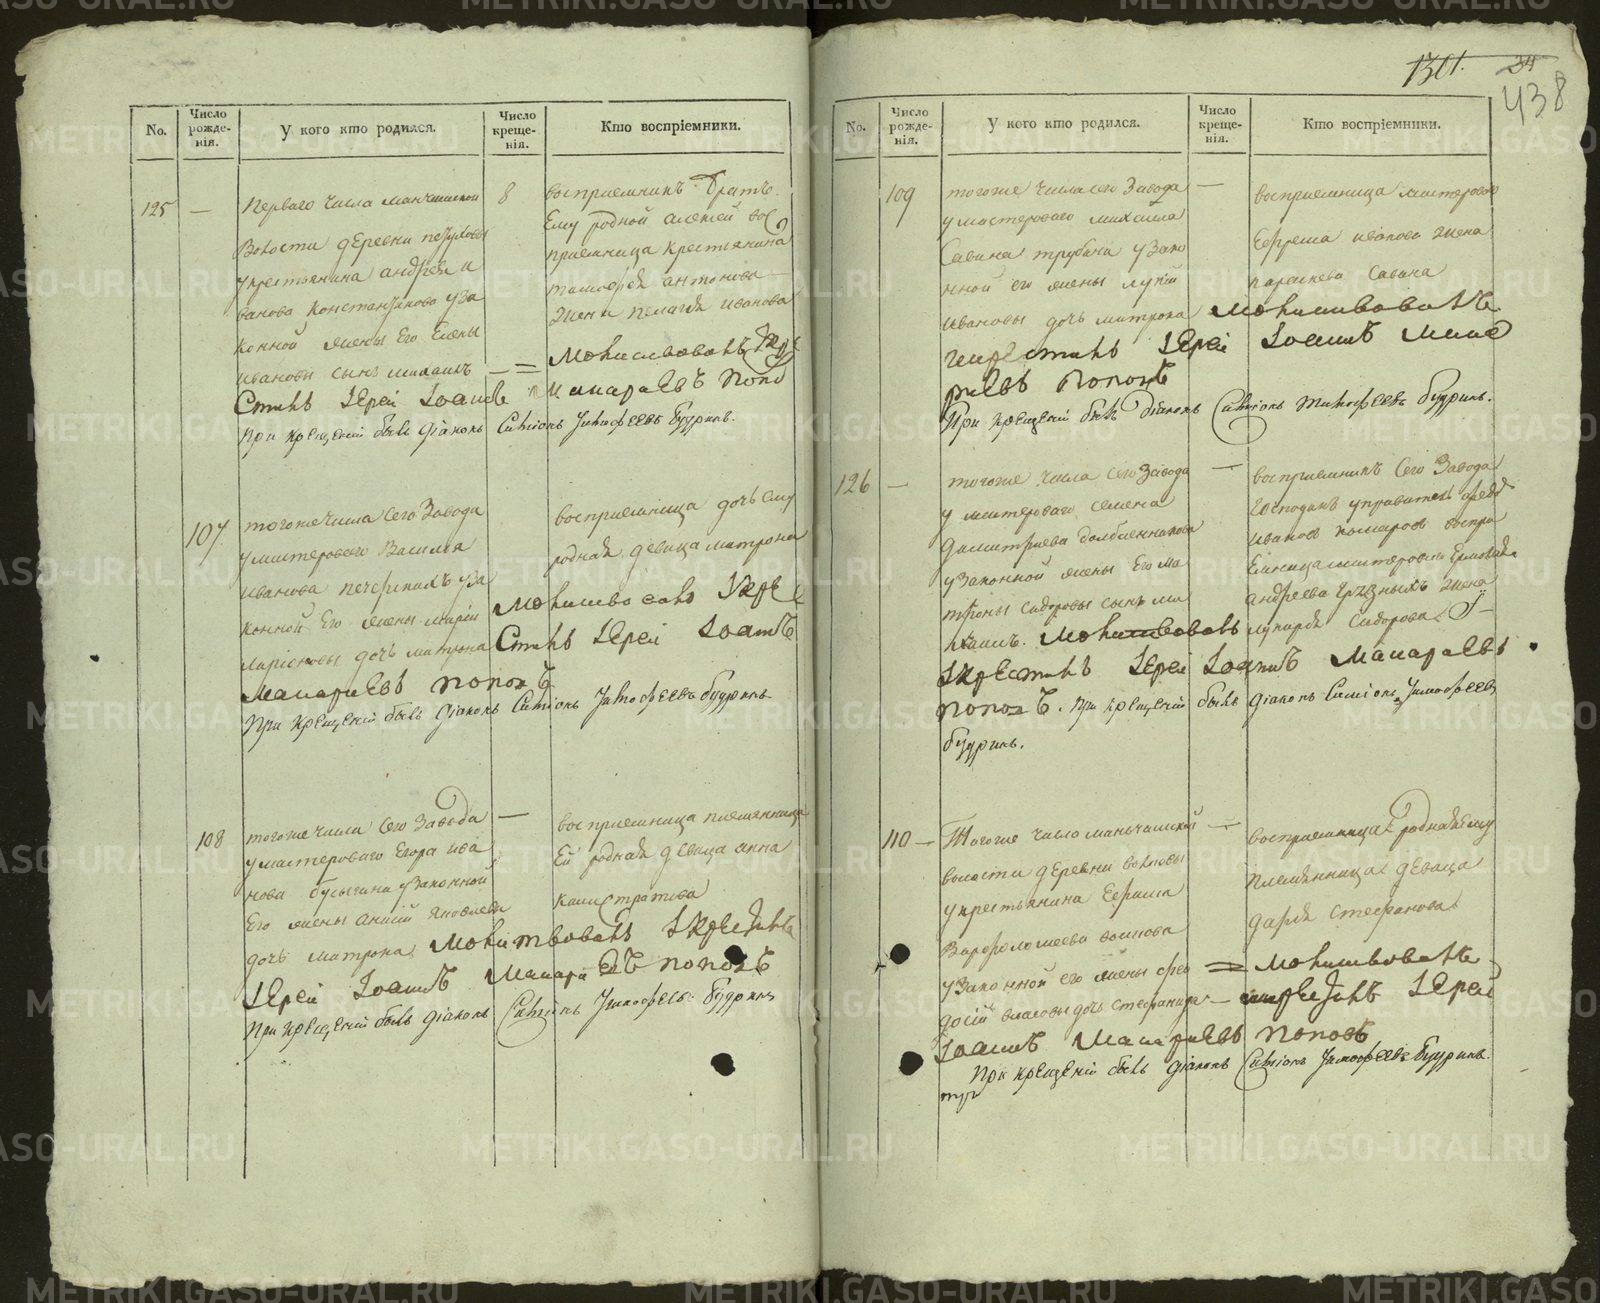 No.
Число рожде-нія.
У кого кто родился.
Число креще-нія.
Кто воспріемники.
125 —
Перваго числа манчашской
волости деревни
у крестьянина андрея и
ванова константинова у за
конной жены Его Елены
ивановы сынъ михаилъ —
8
восприемникъ братъ
Ему родной алексей вос
приемница крестьянина
тимофея антонова
жена пелагея иванова
= Молитвовалъ Кре
Стилъ Іерей Іоаннъ Макариевъ Попо
При крещеніи былъ діаконъ Симіонъ Тимофеевъ Будринъ.
107
тогоже числа Сего Завода
у мастерового Василья
Иванова у за
конной Его жены марии
ларіоновы дочь матрона
восприемница дочь ему
родная девица матрона
Молитвовалъ Кре
Стилъ Іерей Іоаннъ
Макариевъ поповъ
При крещеніи былъ діаконъ Симіонъ Тимофеевъ Будринъ
108
тогоже числа Сего Завода —
у мастероваго Егора ива
нова бусыгина у законной
Его жены анны яковлевы
дочь матрона
восприемница племянница
Ей родная девица анна
калистратова
Молитвовалъ Крестилъ
Іерей Іоаннъ Макариевъ поповъ
При крещеніи былъ діаконъ Симіонъ Тимофеевъ Будринъ
1301.
24
438
No.
Число рожде-нія.
У кого кто родился.
Число креще-нія.
Кто воспріемники.
109
тогоже числа сего Завода —
у мастероваго михаила
Савина трубина у зако
нной его жены лукии
ивановы дочь матрона
восприемница мастероваго
Ефрема иванова жена
параскева Савина
Молитвовалъ
икрестилъ Іерей Іоаннъ Мака
риевъ Поповъ
При крещеніи былъ діаконъ Симіонъ Тимофеевъ Будринъ.
126 —
тогоже числа сего Завода —
у мастероваго семена
димитриева
у Законной жены Его ма
троны сидоровы сынъ ми
хаилъ.
восприемникъ Сего Завода
Господинъ управитель федо
ивановъ комаровъ воспри
Емница мастерового Ермолая
андреева грязныхъ жена
лукерья Сидорова
Молитвовалъ
Икрестилъ Іерей Іоаннъ Макариевъ
поповъ. При крещеніи былъ діаконъ Симіонъ Тимофеевъ
будринъ.
110 —
Тогоже число манчашской —
волости деревни волковы
у крестьянина Ефима
Варфоломеева волкова
у Законной его жены фео
досіи власовы дочь стефанида —
восприемница родная ему
племянница девица
дарья стефанова
= Молитвовалъ
икрестилъ Іерей
Іоаннъ Макариевъ поповъ
При крещеніи былъ діаконъ Симіонъ Тимофеевъ Будринъ.
METRIKI.GASO-URAL.RU